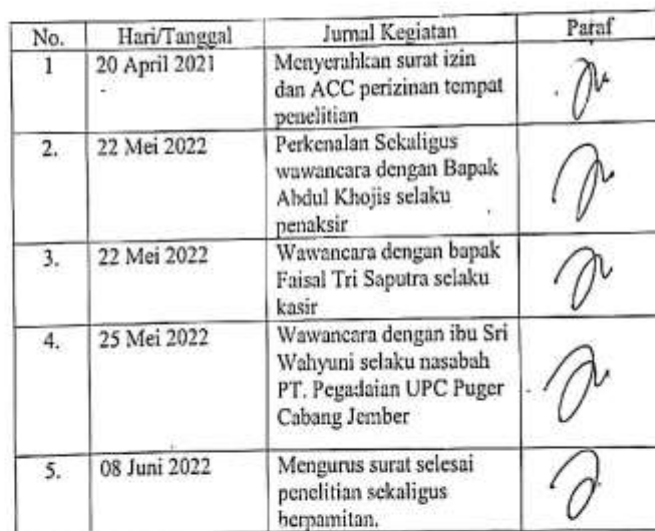 No. Hari/Tanggal Jurnal Kegiatan Paraf
1 20 April 2021 Menyerahkan surat izin
dan ACC perizinan tempat
penelitian
2. 22 Mei 2022 Perkenalan Sekaligus
wawancara dengan Bapak
Abdul Khojis selaku
penaksir
3. 22 Mei 2022 Wawancara dengan bapak
Faisal Tri Saputra selaku
kasir
4. 25 Mei 2022 Wawancara dengan ibu Sri
Wahyuni selaku nasabah
PT. Pegadaian UPC Puger
Cabang Jember
5. 08 Juni 2022 Mengurus surat selesai
penelitian sekaligus
berpamitan.